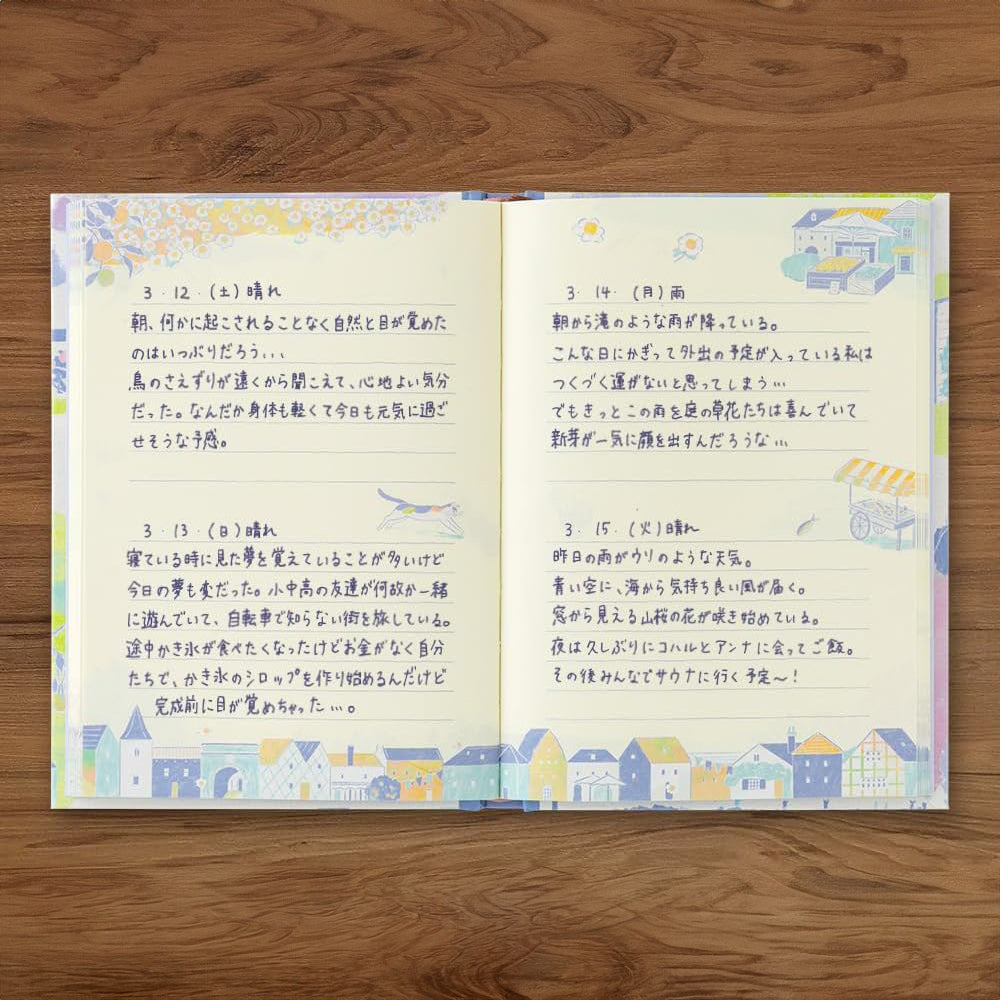 3・12・(土)晴れ
朝、何かに起こされることなく自然と目が覚めた
のはいつぶりだろう...
鳥のさえずりが遠くから聞こえて、心地よい気分
だった。なんだか身体も軽くて今日も元気に過ご
せそうな予感。
3・13・(日)晴れ
寝ている時に見た夢を覚えていることが多いけど
今日の夢も変だった。小中高の友達が何故か一緒
に遊んでいて、自転車で知らない街を旅している。
途中かき氷が食べたくなったけどお金がなく自分
たちで、かき氷のシロップを作り始めるんだけど
完成前に目が覚めちゃった...。
3・14・(月)雨
朝から滝のような雨が降っている。
こんな日にかぎって外出の予定が入っている私は
つくづく運がないと思ってしまう...
でもきっとこの雨を庭の草花たちは喜んでいて
新芽が一気に顔を出すんだろうな...
3・15・(火)晴れ
昨日の雨がウリのような天気。
青い空に、海から気持ち良い風が届く。
窓から見える山桜の花が咲き始めている。
夜は久しぶりにコハルとアンナに会ってご飯。
その後みんなでサウナに行く予定〜!